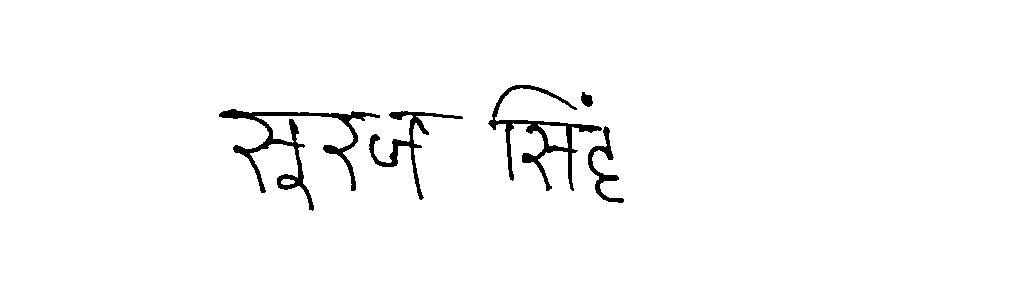 सूरज सिंह